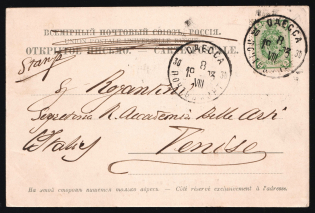 ВСЕМІРНЫЙ ПОЧТОВЫЙ СОЮЗЪ. РОССІЯ.
UNION POSTALE UNIVERSELLE. RUSSIE.
ОТКРЫТОЕ ПИСЬМО. CARTE POSTALE.
ОДЕССА
8
VIII
ОДЕССА
8
VIII
Sg Rozantini
Segretario R. Accademia Belle Arti
Venise
На этой сторонѣ пишется только адресъ. — Côté réservé exclusivement à l'adresse.